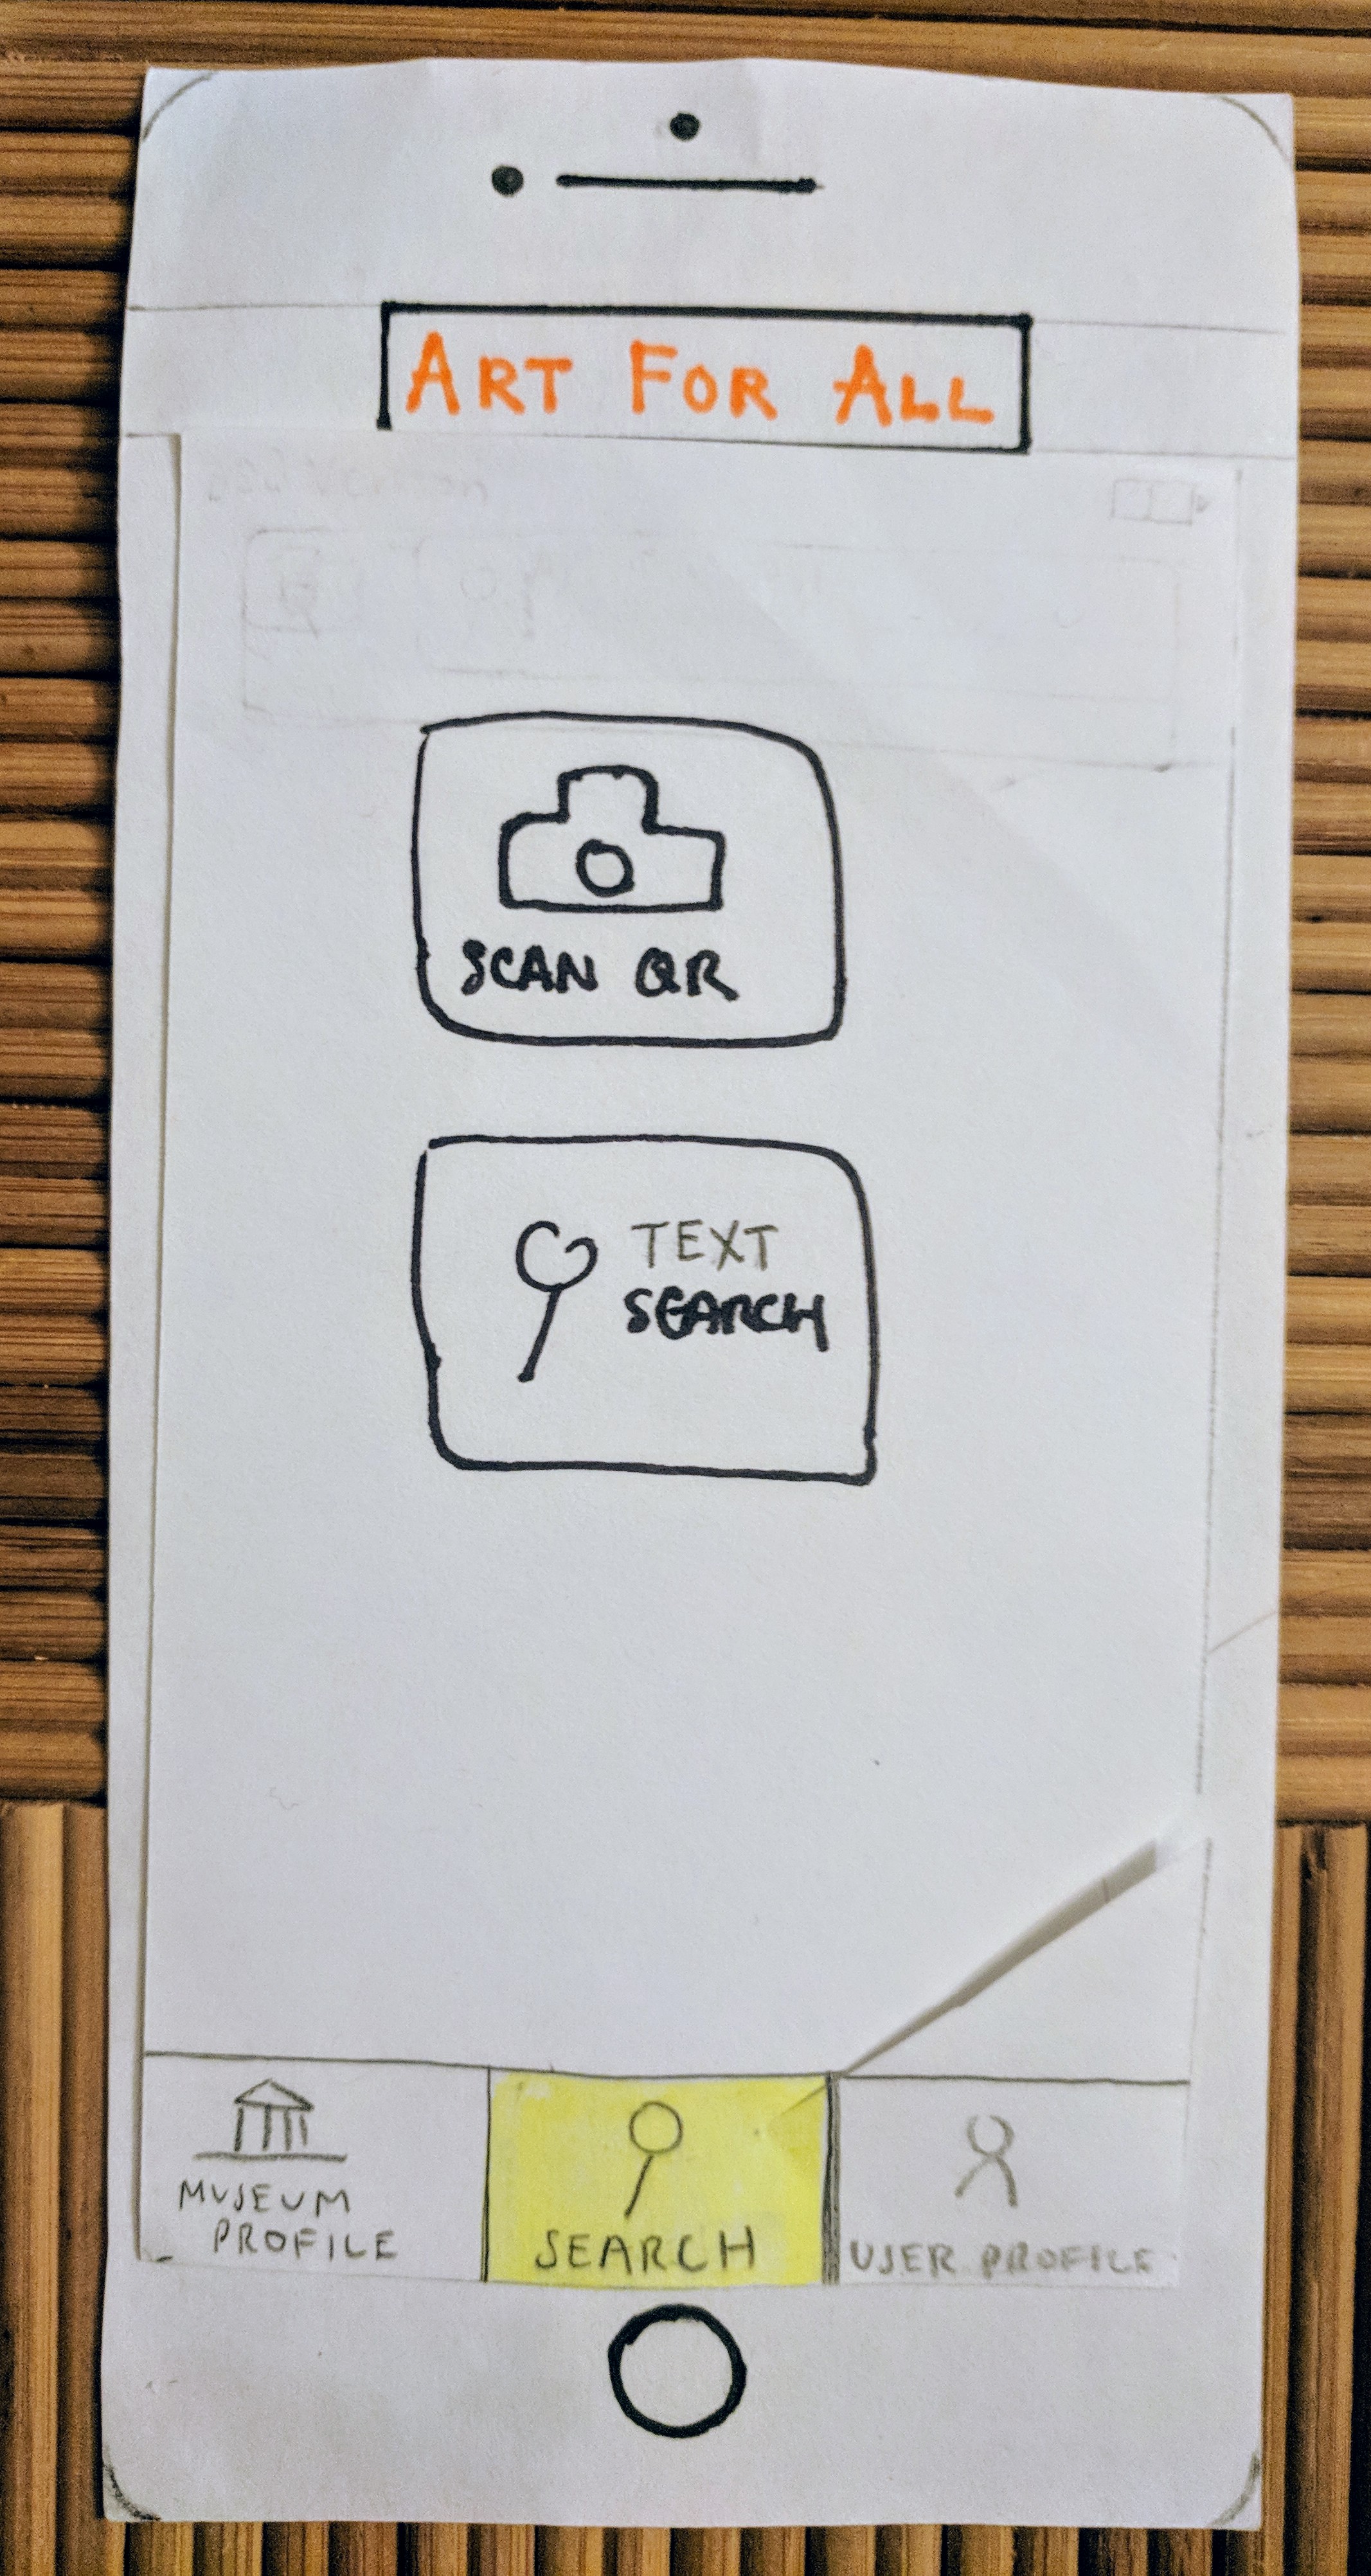 ART FOR ALL
SCAN QR
TEXT
SEARCH
MUSEUM
PROFILE
SEARCH
USER PROFILE